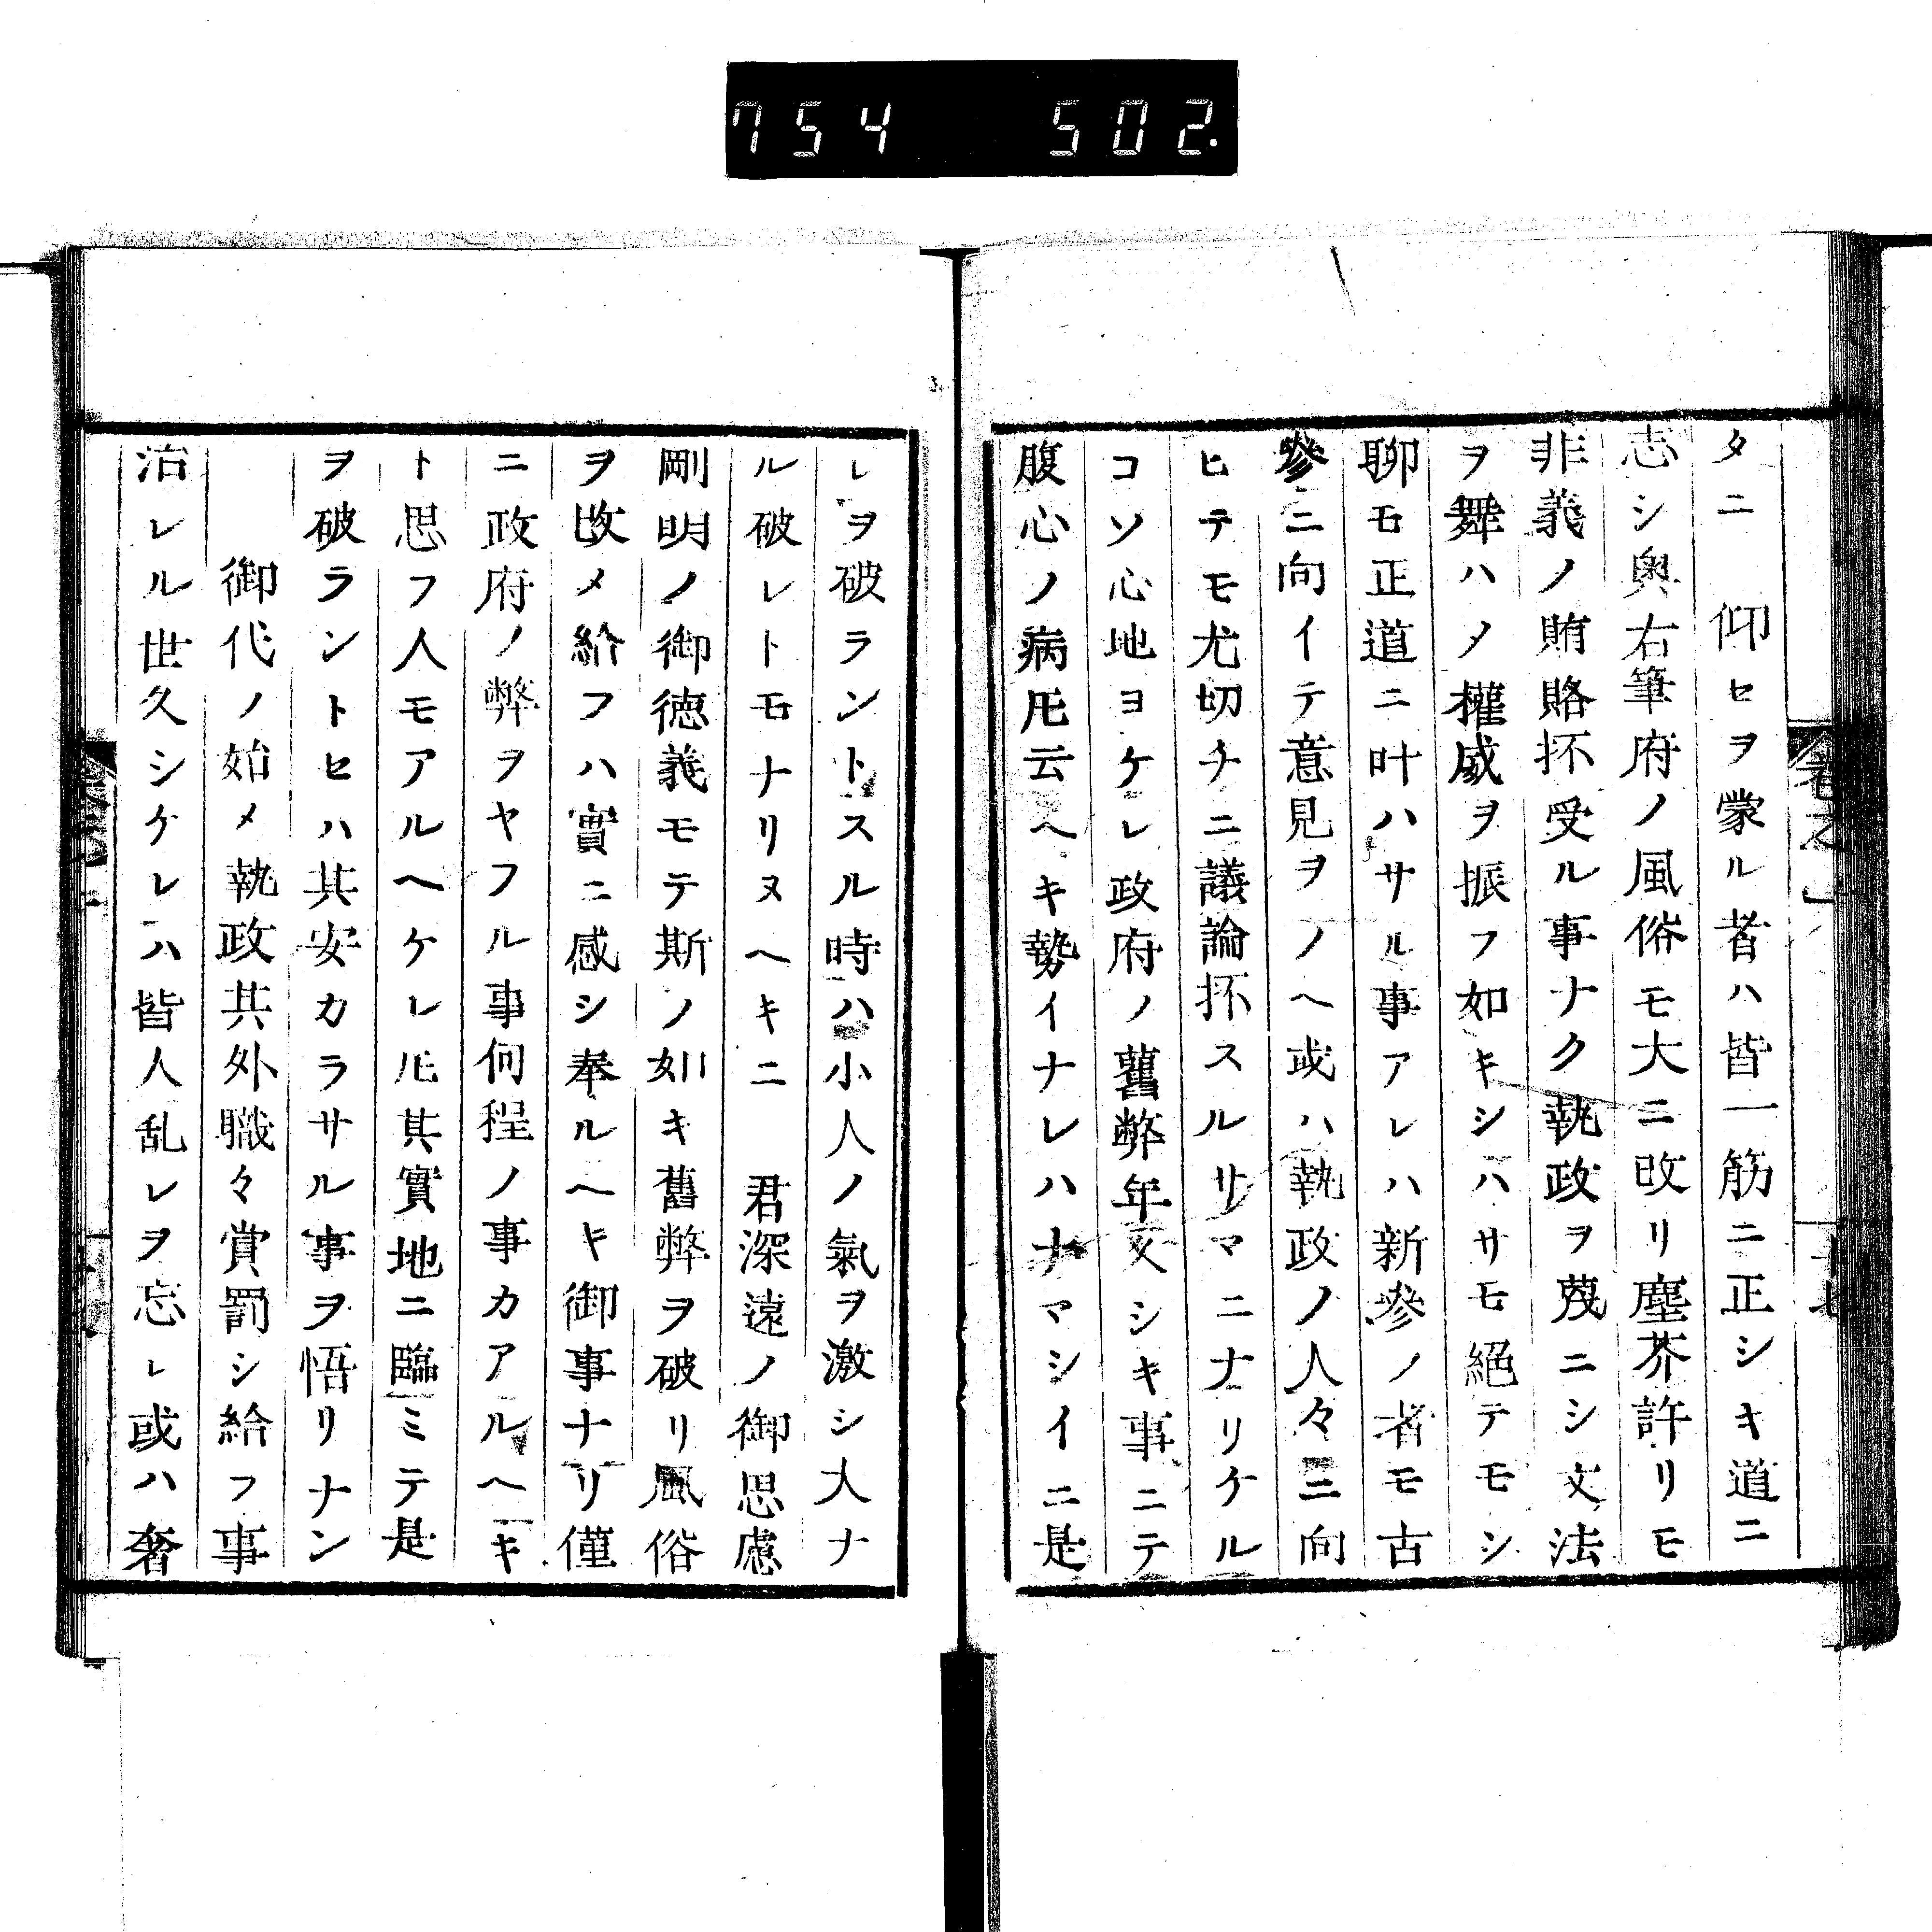 754 502.
タニ　仰セヲ蒙ル者ハ皆一筋ニ正シキ道ニ
志シ奥右筆府ノ風俗モ大ニ改リ塵芥許リモ
非義ノ賄賂抔受ル事ナク執政ヲ蔑ニシ文法
ヲ舞ハメ權威ヲ振フ如キシハサモ絕テモシ
聊モ正道ニ叶ハサル事アレハ新參ノ者モ古
參ニ向イテ意見ヲノヘ或ハ執政ノ人々ニ向
ヒテモ尤切チニ議論抔スルサマニナリケル
コソ心地ヨケレ政府ノ舊弊年久シキ事ニテ
腹心ノ病𪜈云ヘキ勢イナレハナマシイニ是
レヲ破ラントスル時ハ小人ノ氣ヲ激シ大ナ
ル破レトモナリヌヘキニ　君深遠ノ御思慮
剛明ノ御德義モテ斯ノ如キ舊弊ヲ破リ風俗
ヲ改メ給フハ實ニ感シ奉ルヘキ御事ナリ僅
ニ政府ノ弊ヲヤフル事何程ノ事カアルヘキ
ト思フ人モアルヘケレ𪜈其實地ニ臨ミテ是
ヲ破ラントセハ其安カラサル事ヲ悟リナン
御代ノ始メ執政其外職々賞罰シ給フ事
治レル世久シケレハ皆人乱レヲ忘レ或ハ奢